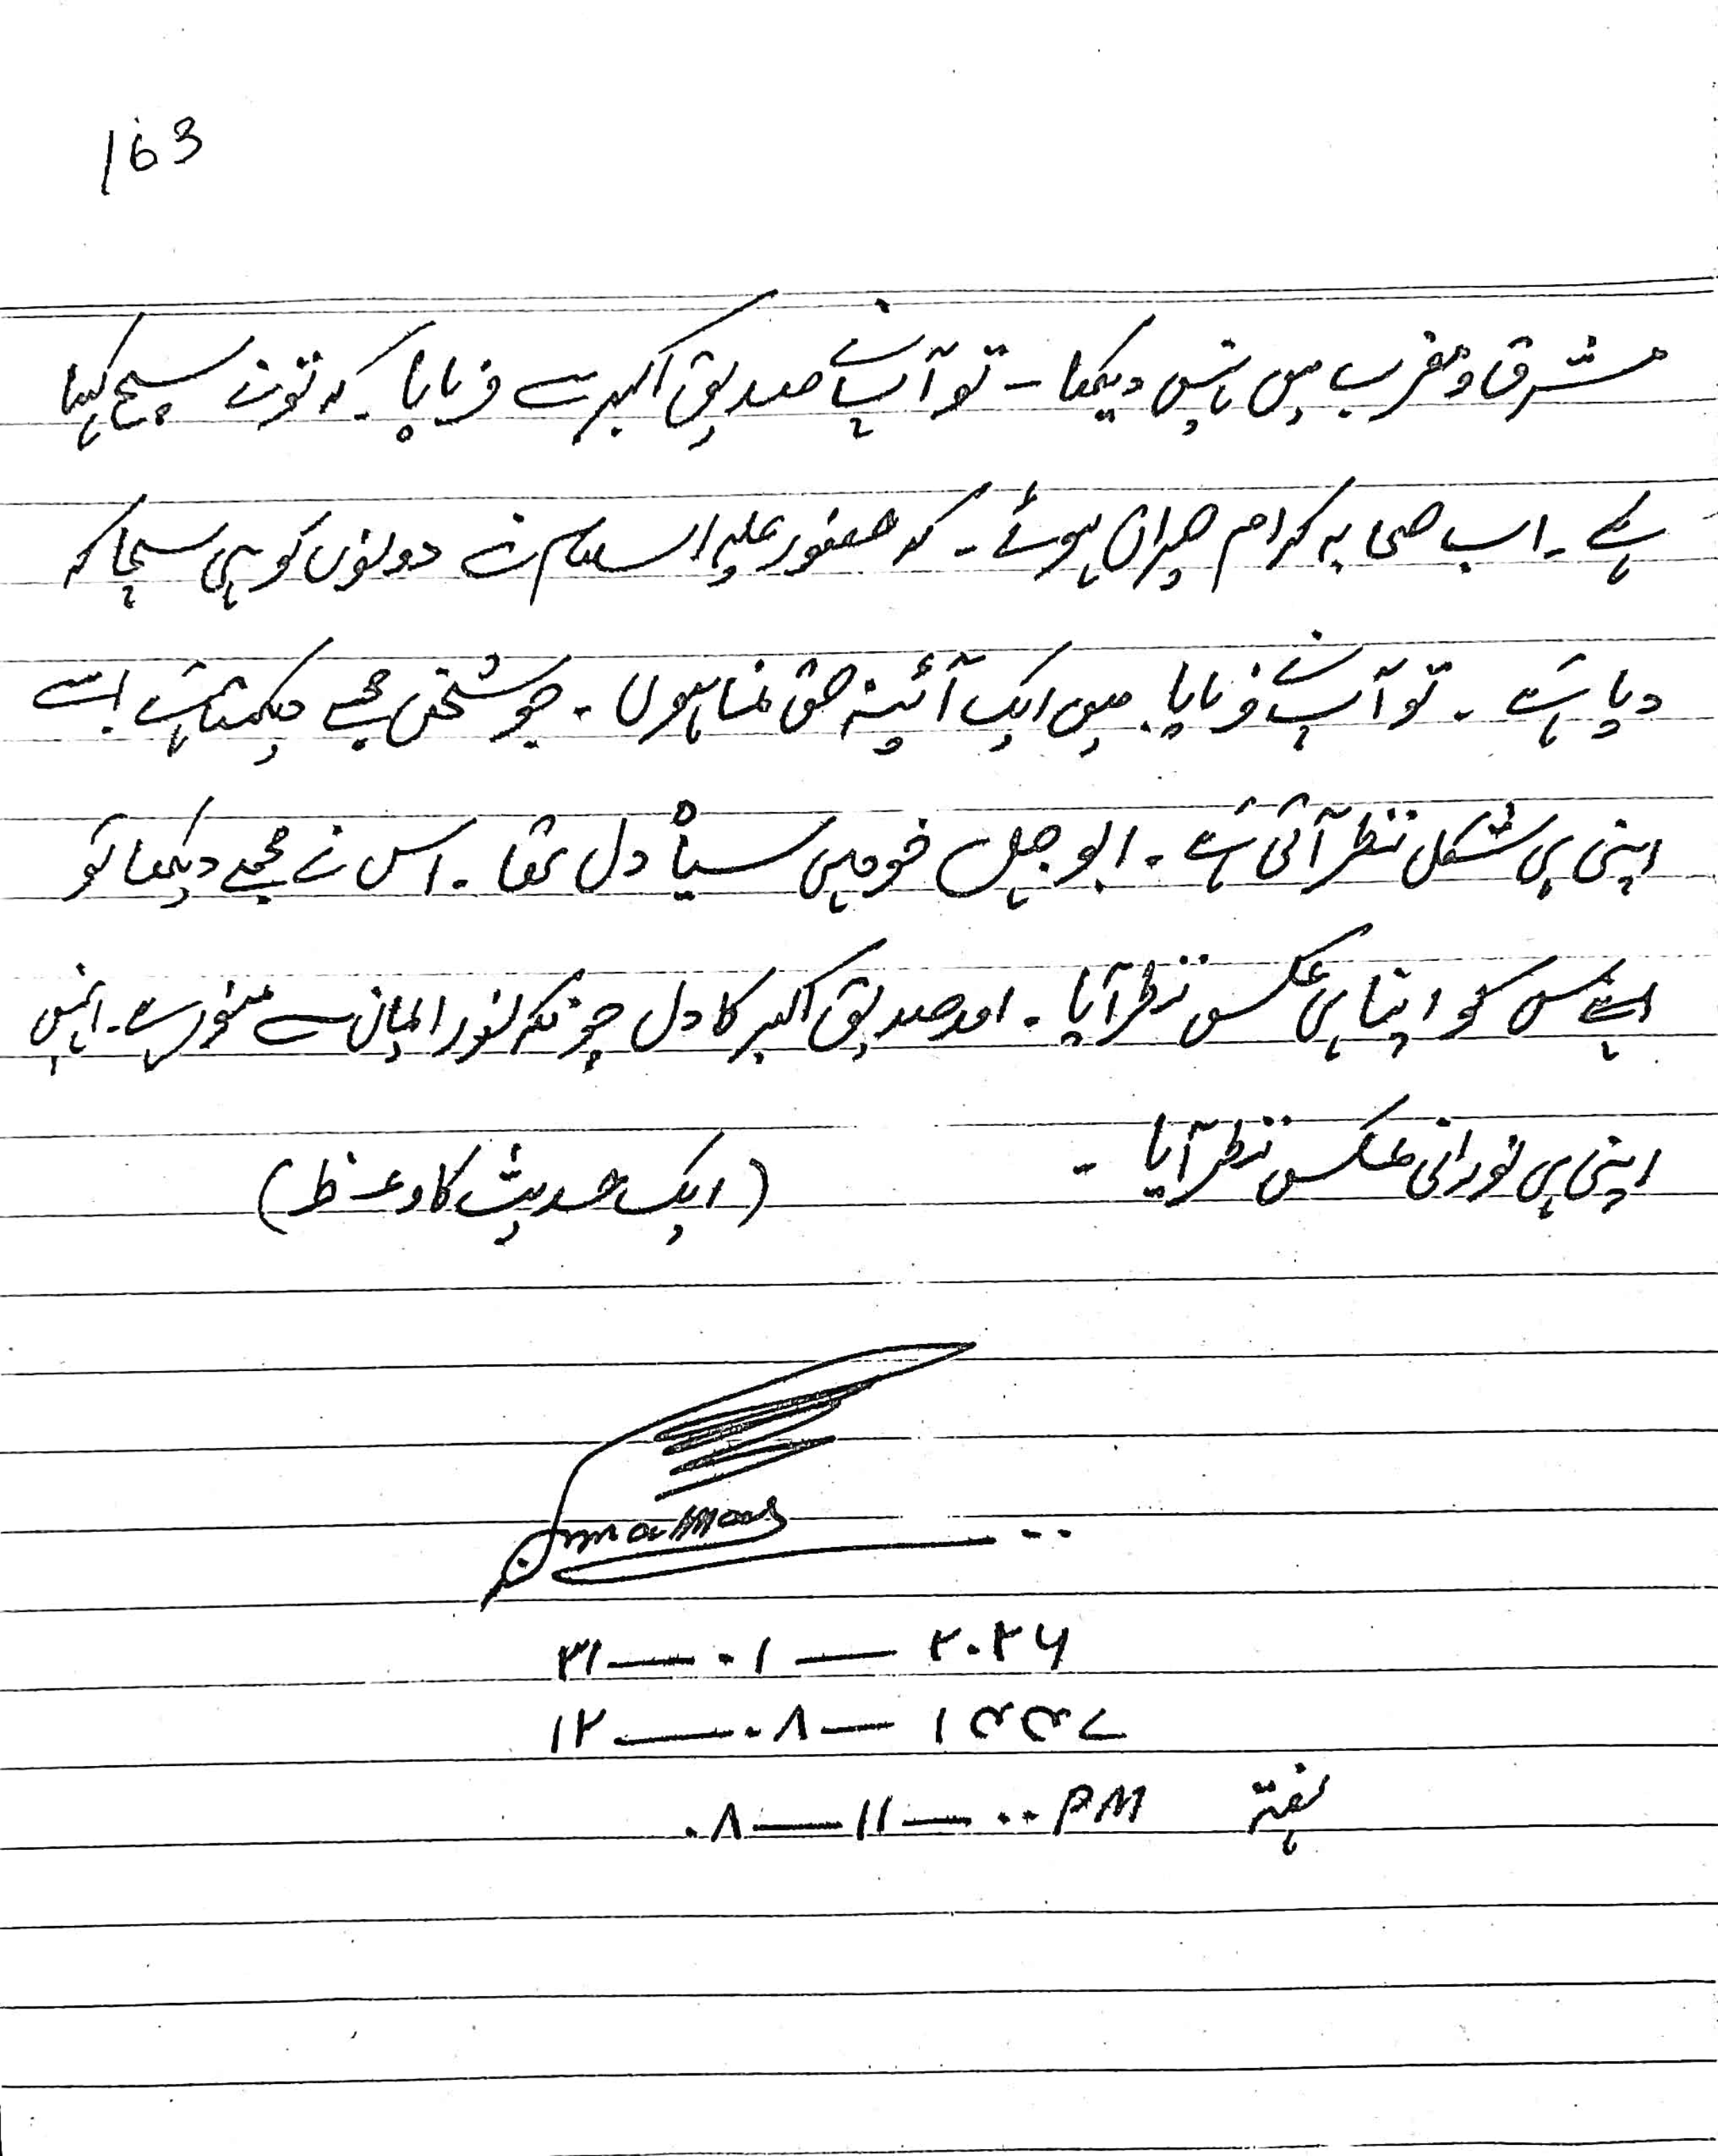 163
مشرق و مغرب میں نہیں دیکھا - تو آپ نے صدیق اکبر سے فرمایا - کہ تو نے سچ کہا
ہے - اب صحابہ کرام حیران ہوئے - کہ حضور علیہ السلام نے دونوں کو ہی سچا کہ
دیا ہے - تو آپ نے فرمایا - میں ایک آئینہ حق نما ہوں - جو شخص مجھے دیکھتا ہے اسے
اپنی ہی شکل نظر آتی ہے - ابو جہل خود ہی سیاہ دل تھا - اس نے مجھے دیکھا تو
کو اپنا ہی عکس نظر آیا - اور صدیق اکبر کا دل چونکہ نور ایمان سے منور ہے - انہیں
اپنی ہی نورانی عکس نظر آیا -
(ایک حدیث کا وعظ)
۳۱ — ۰۱ — ۲۰۲۶
۱۲ — ۰۸ — ۱۴۴۷
۰۸ — ۱۱ — ۰۰ PM ہفتہ